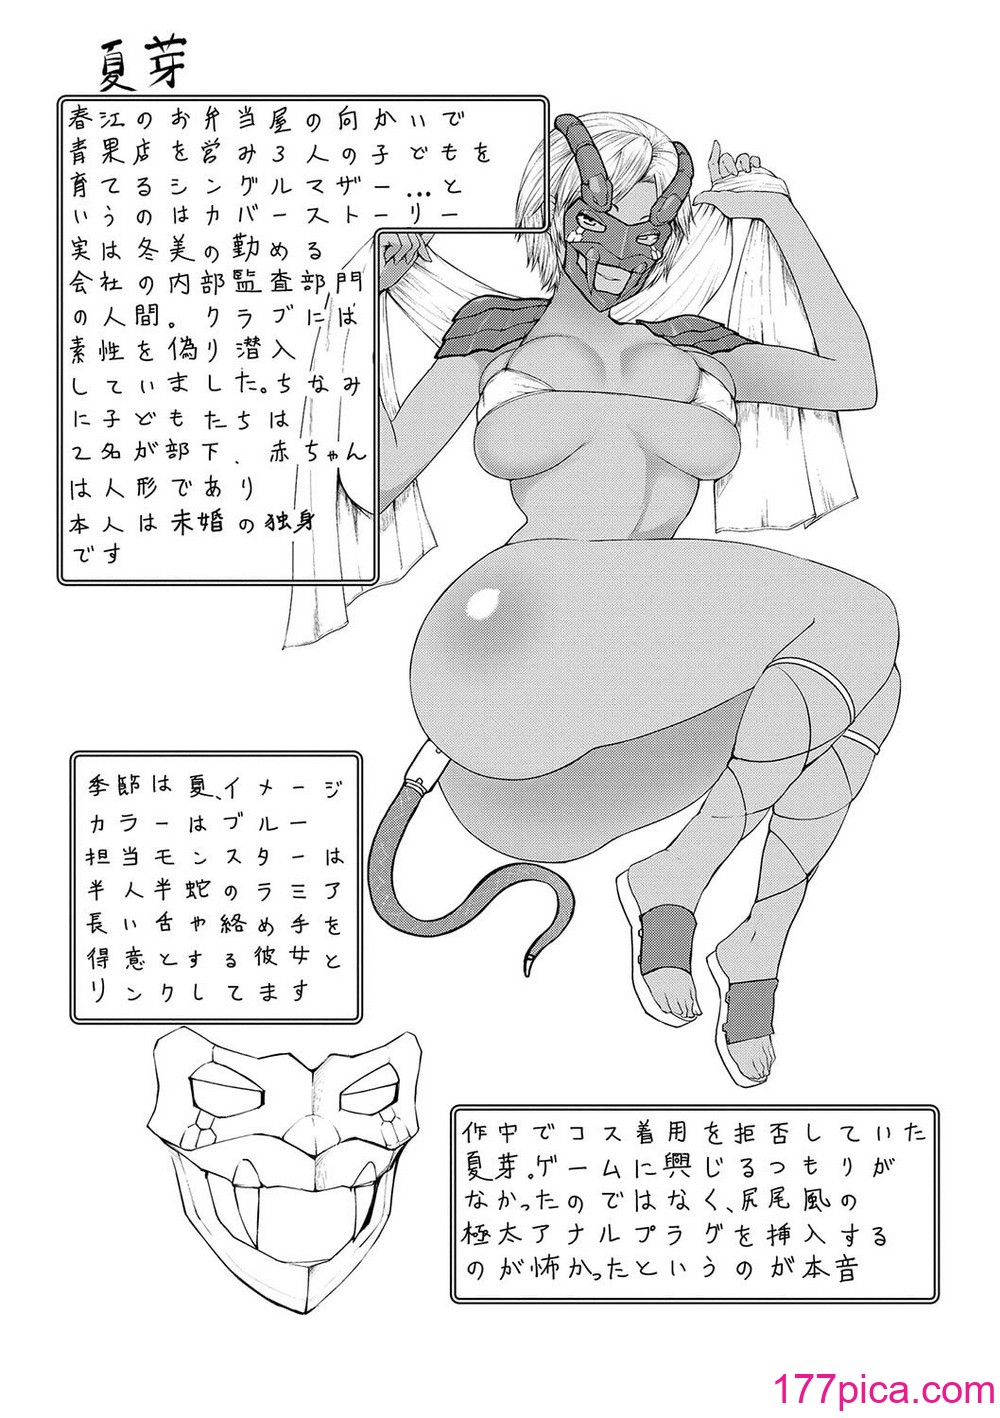 夏芽
春江のお弁当屋の向かいで
青果店を営み3人の子どもを
育てるシングルマザー…と
いうのはカバーストーリー
実は冬美の勤める
会社の内部監査部門
の人間。クラブには
素性を偽り潜入
していました。ちなみ
に子どもたちは
2名が部下、赤ちゃん
は人形であり
本人は未婚の独身
です
季節は夏、イメージ
カラーはブルー
担当モンスターは
半人半蛇のラミア
長い舌や絡め手を
得意とする彼女と
リンクしてます
作中でコス着用を拒否していた
夏芽。ゲームに興じるつもりが
なかったのではなく、尻尾風の
極太アナルプラグを挿入する
のが怖かったというのが本音
177pica.com